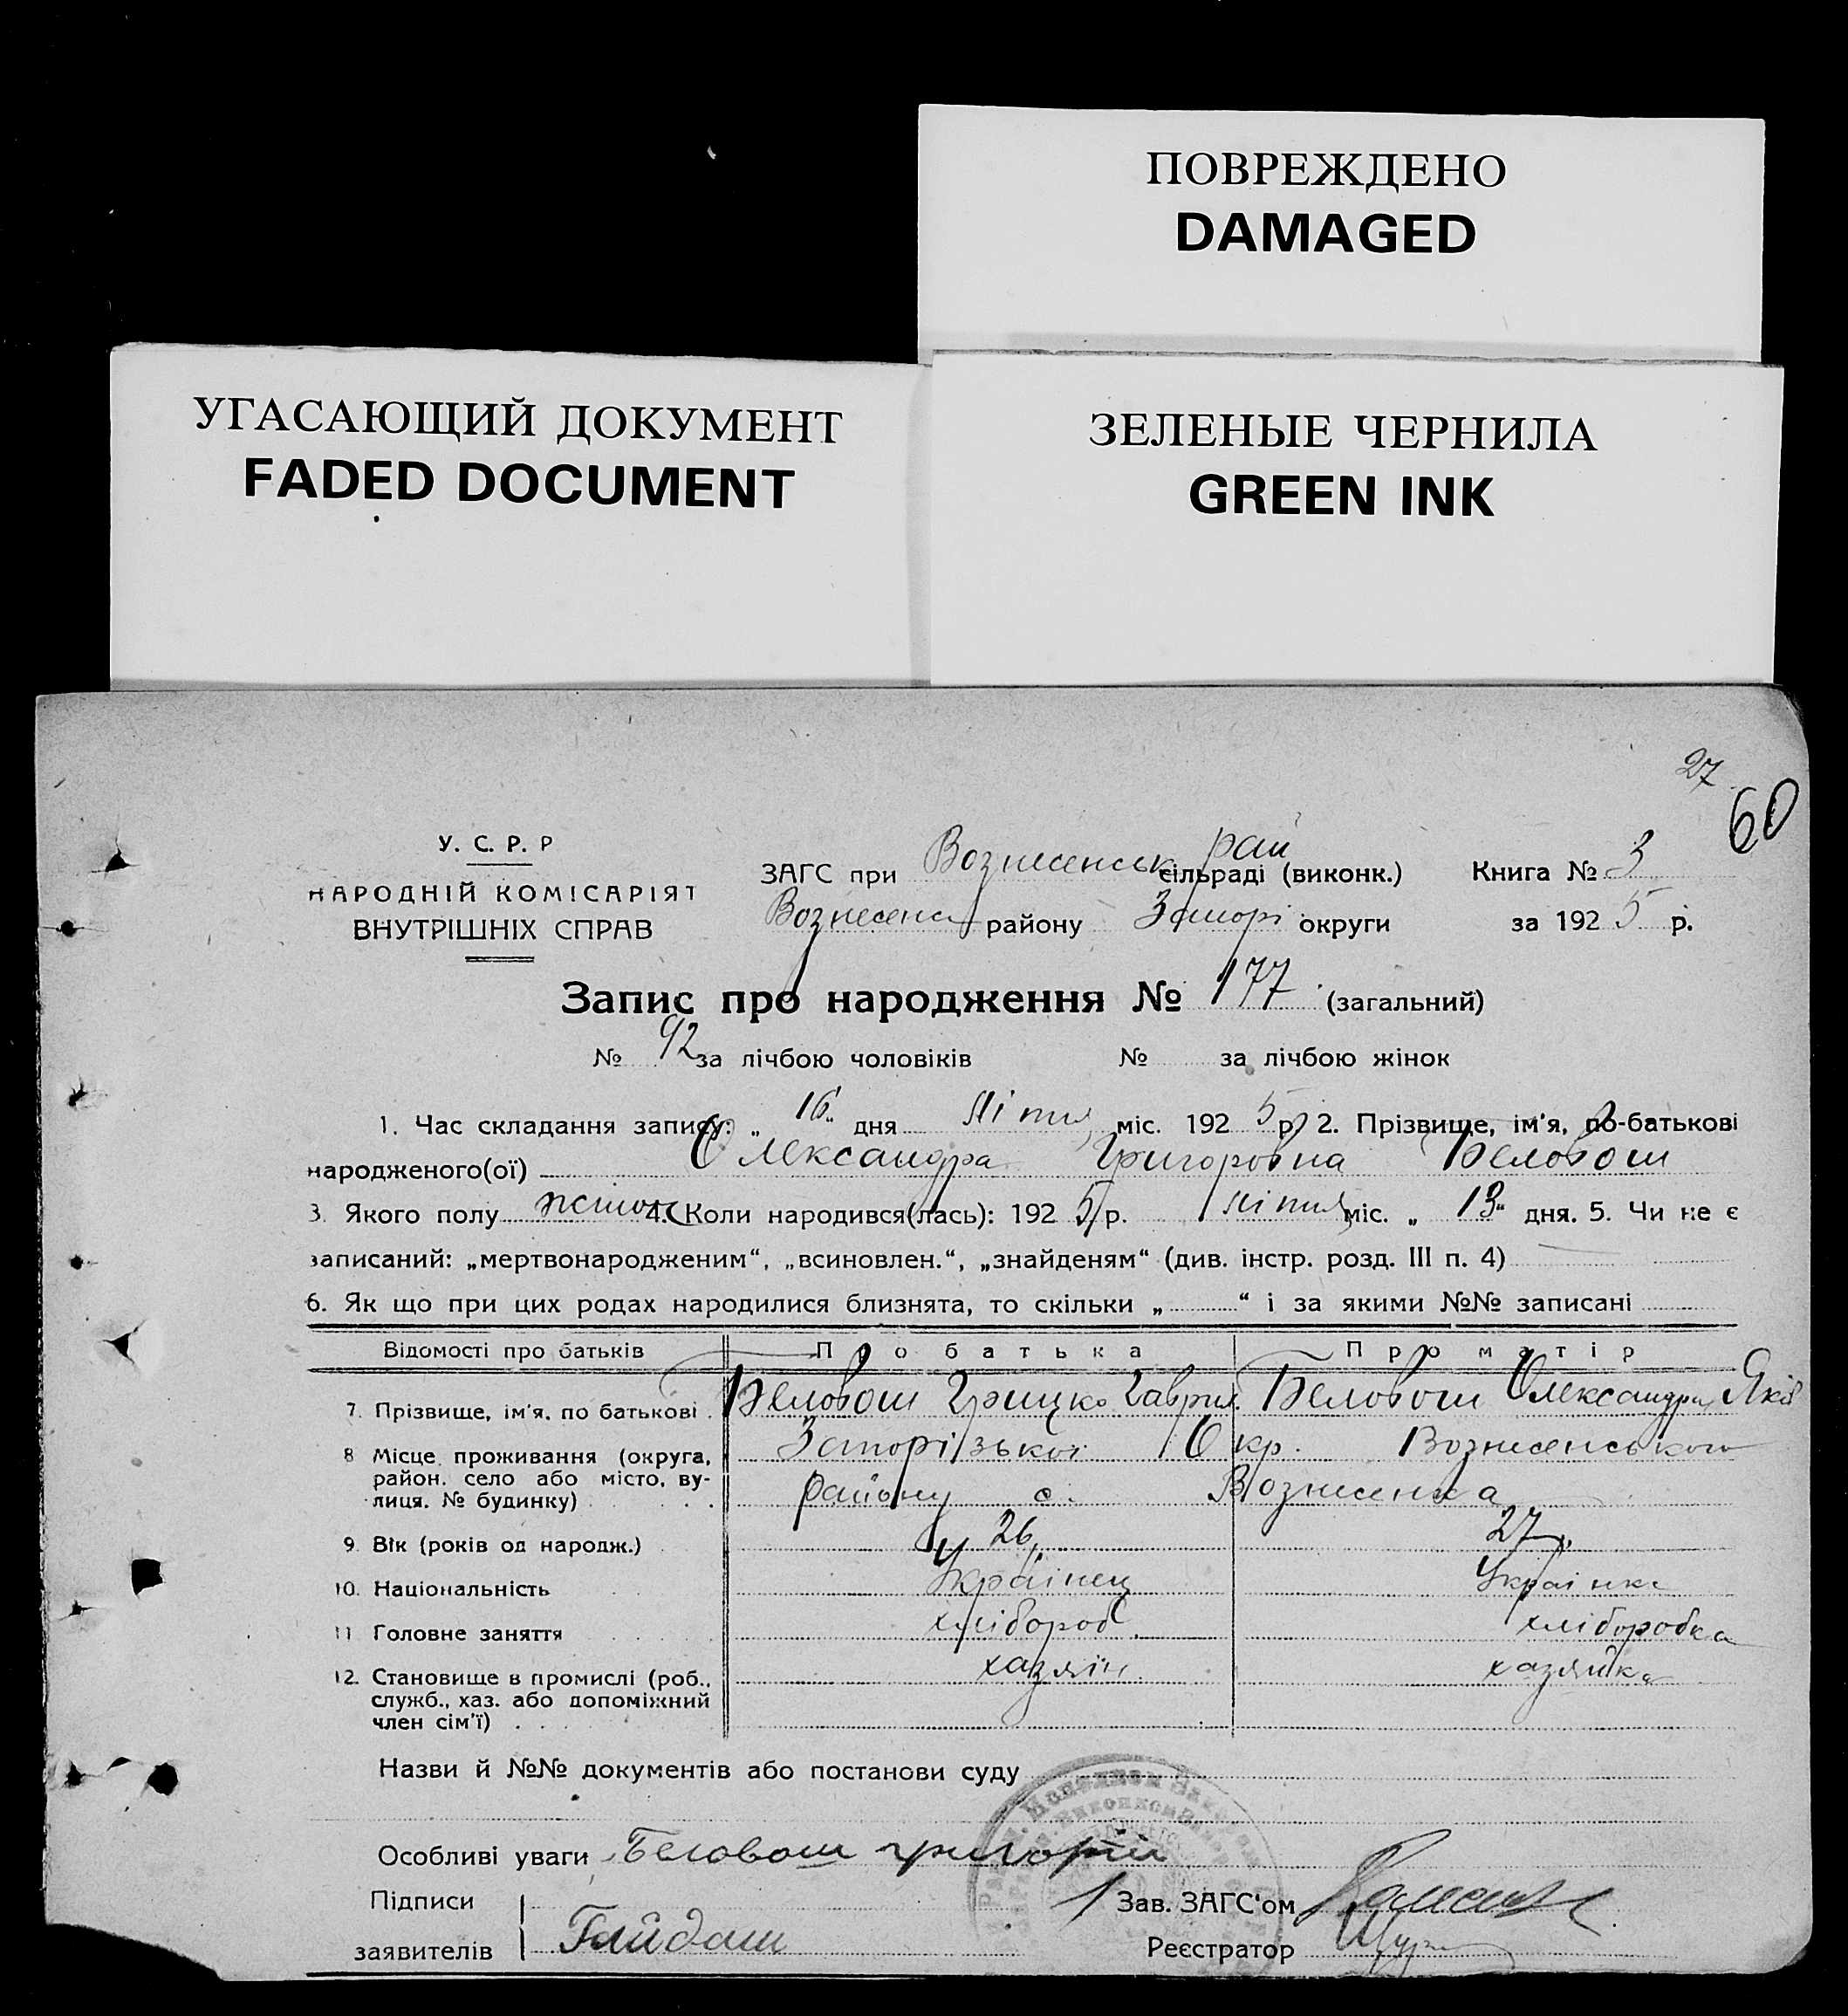 ПОВРЕЖДЕНО
DAMAGED
УГАСАЮЩИЙ ДОКУМЕНТ
FADED DOCUMENT
ЗЕЛЕНЫЕ ЧЕРНИЛА
GREEN INK
27
60
У. С. Р. Р
НАРОДНІЙ КОМІСАРІЯТ
ВНУТРІШНІХ СПРАВ
ЗАГС при Вознесенськ рай сільраді (виконк.) Книга № 3
Вознесенс району Запорі округи за 192 5 р.
Запис про народження № 177 (загальний)
№ 92 за лічбою чоловіків № за лічбою жінок
1. Час складання запису: „ 16 “ дня Ліпня міс. 192 5 р. 2. Прізвище, ім'я, по-батькові
народженого(ої) Олександра Григоровна Беловол
3. Якого полу жіноч 4. Коли народився(лась): 192 5 р. ліпня міс. „ 13 “ дня. 5. Чи не є
записаний: „мертвонародженим“, „всиновлен.“, „знайденям“ (див. інстр. розд. III п. 4)
6. Як що при цих родах народилися близнята, то скільки „ “ і за якими №№ записані
Відомості про батьків Про батька Про матір
7. Прізвище, ім'я, по батькові Беловол Грицко Гаврил. Беловол Олександра Яків
8 Місце проживання (округа, район, село або місто, вулиця. № будинку) Запорізької Окр. Вознесенського
району с. Вознесенка
9. Вік (років од народж.) 26 27
10. Національність Українец Українка
11 Головне заняття хлібороб хліборобка
12. Становище в промислі (роб., служб., хаз. або допоміжний член сім'ї) хазяїн хазяйка
Назви й №№ документів або постанови суду
Особливі уваги Беловол григорій
Підписи Зав. ЗАГС'ом
заявителів Гайдаш Реєстратор